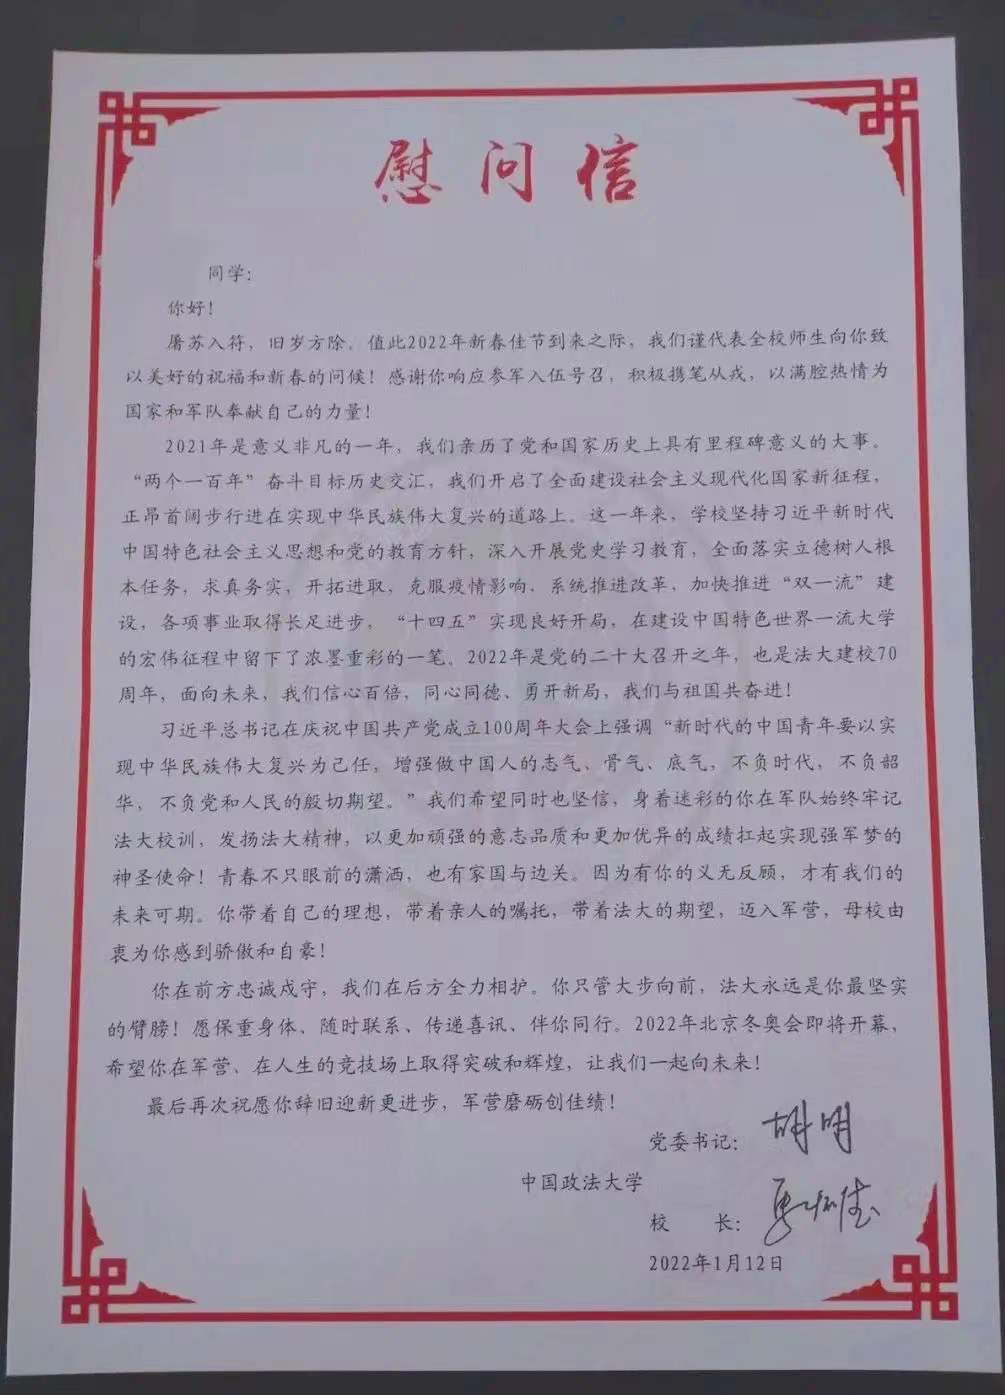 慰问信
同学：
你好！
屠苏入符，旧岁方除。值此2022年新春佳节到来之际，我们谨代表全校师生向你致
以美好的祝福和新春的问候！感谢你响应参军入伍号召，积极携笔从戎，以满腔热情为
国家和军队奉献自己的力量！
2021年是意义非凡的一年，我们亲历了党和国家历史上具有里程碑意义的大事。
“两个一百年”奋斗目标历史交汇，我们开启了全面建设社会主义现代化国家新征程，
正昂首阔步行进在实现中华民族伟大复兴的道路上。这一年来，学校坚持习近平新时代
中国特色社会主义思想和党的教育方针，深入开展党史学习教育，全面落实立德树人根
本任务，求真务实，开拓进取，克服疫情影响、系统推进改革，加快推进“双一流”建
设，各项事业取得长足进步，“十四五”实现良好开局，在建设中国特色世界一流大学
的宏伟征程中留下了浓墨重彩的一笔。2022年是党的二十大召开之年，也是法大建校70
周年，面向未来，我们信心百倍，同心同德、勇开新局，我们与祖国共奋进！
习近平总书记在庆祝中国共产党成立100周年大会上强调“新时代的中国青年要以实
现中华民族伟大复兴为己任，增强做中国人的志气、骨气、底气，不负时代，不负韶
华，不负党和人民的殷切期望。”我们希望同时也坚信，身着迷彩的你在军队始终牢记
法大校训，发扬法大精神，以更加顽强的意志品质和更加优异的成绩扛起实现强军梦的
神圣使命！青春不只眼前的潇洒，也有家国与边关。因为有你的义无反顾，才有我们的
未来可期。你带着自己的理想，带着亲人的嘱托，带着法大的期望，迈入军营，母校由
衷为你感到骄傲和自豪！
你在前方忠诚戍守，我们在后方全力相护。你只管大步向前，法大永远是你最坚实
的臂膀！愿保重身体、随时联系、传递喜讯、伴你同行。2022年北京冬奥会即将开幕，
希望你在军营、在人生的竞技场上取得突破和辉煌，让我们一起向未来！
最后再次祝愿你辞旧迎新更进步，军营磨砺创佳绩！
党委书记：胡明
中国政法大学
校　　长：马怀德
2022年1月12日